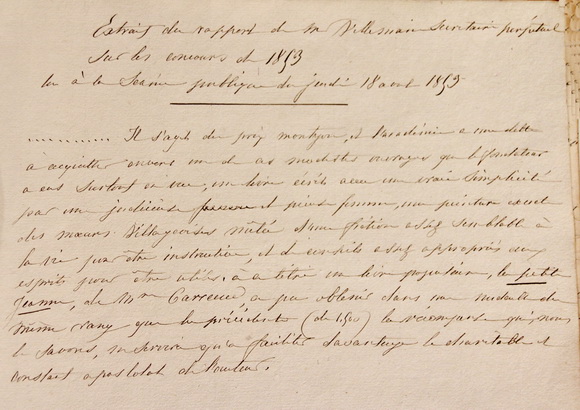 Extrait du rapport de Mr Villemain Secrétaire perpétuel
sur les concours de 1853
lu à la Séance publique du jeudi 18 aout 1853
.......... Il s'agit du prix montyon, et l'académie a une dette
à acquitter envers un de ces modestes ouvrages que le fondateur
a eus surtout en vue, un livre écrit avec une vraie simplicité
par une judicieuse et pieuse femme, une peinture exacte
des mœurs villageoises mêlée d'une fiction assez semblable à
la vie pour être instructive, et de conseils assez appropriés aux
esprits pour être utiles. à ce titre un livre populaire, la petite
Jeanne, de Mme Carreaud, a pu obtenir dans une médaille de
même rang que la précédente (de 1500) la récompense qui, nous
le savons, ne servira qu'à faciliter davantage le charitable et
constant apostolat de l'auteur.